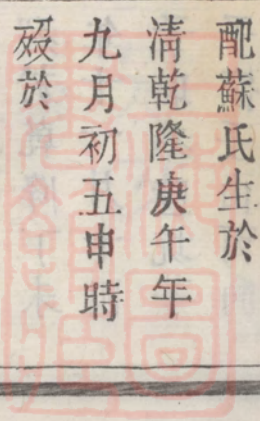 配蘇氏生於
清乾隆庚午年
九月初五申時
歿於